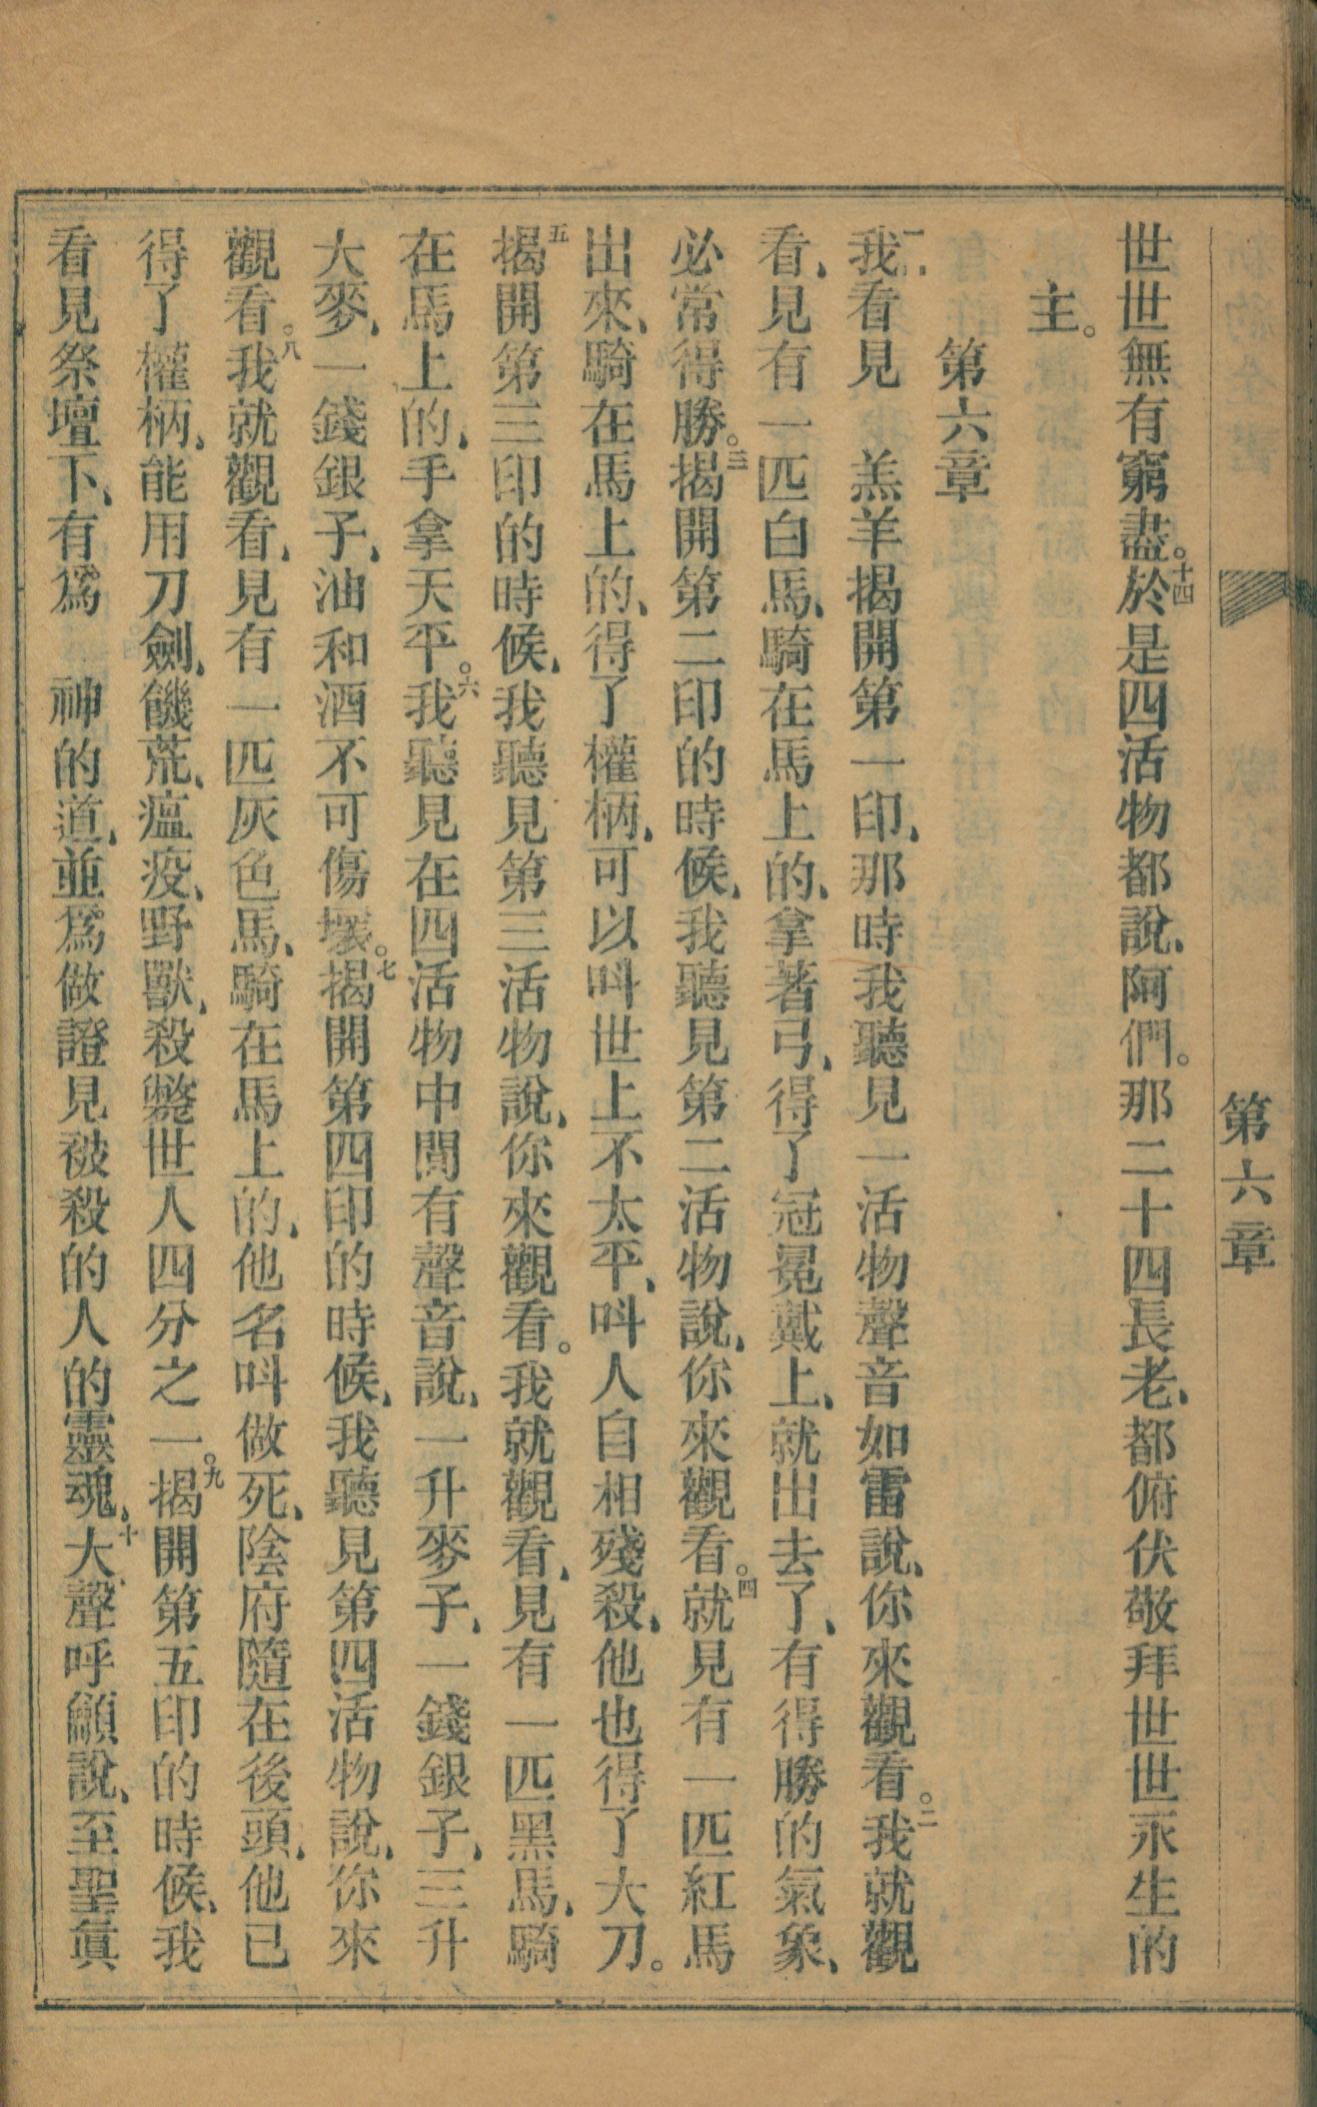 第六章
世世無有窮盡。十四於是四活物都說、阿們。那二十四長老、都俯伏敬拜世世永生的
主。
第六章
一我看見　羔羊揭開第一印、那時我聽見一活物聲音如雷說、你來觀看。二我就觀
看、見有一匹白馬、騎在馬上的、拿著弓、得了冠冕戴上、就出去了、有得勝的氣象、
必常得勝。三揭開第二印的時候、我聽見第二活物說、你來觀看。四就見有一匹紅馬
出來、騎在馬上的、得了權柄、可以呌世上不太平、呌人自相殘殺、他也得了大刀。
五揭開第三印的時候、我聽見第三活物說、你來觀看。我就觀看、見有一匹黑馬、騎
在馬上的、手拿天平。六我聽見在四活物中間有聲音說、一升麥子、一錢銀子、三升
大麥、一錢銀子、油和酒不可傷壞。七揭開第四印的時候、我聽見第四活物說、你來
觀看。八我就觀看、見有一匹灰色馬、騎在馬上的、他名呌做死、陰府隨在後頭、他已
得了權柄、能用刀劍、饑荒、瘟疫、野獸、殺斃世人四分之一。九揭開第五印的時候、我
看見祭壇下、有爲　神的道、並爲做證見被殺的人的靈魂、十大聲呼籲說、至聖眞